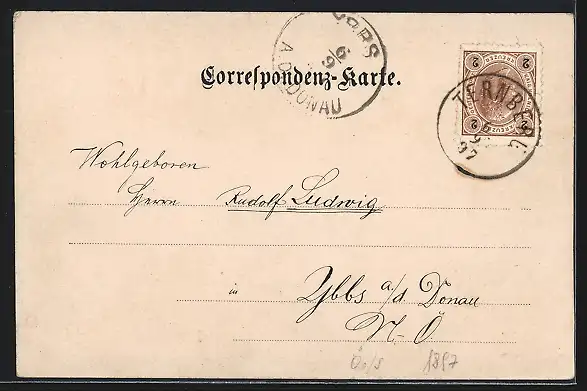 YBBS
6/9
A.D. DONAU
Correspondenz-Karte.
2 KREUZER 2
TERNBERG
6 9
97
Wohlgeboren
Herrn Rudolf Ludwig
in Ybbs a/d. Donau
N-Ö
1897